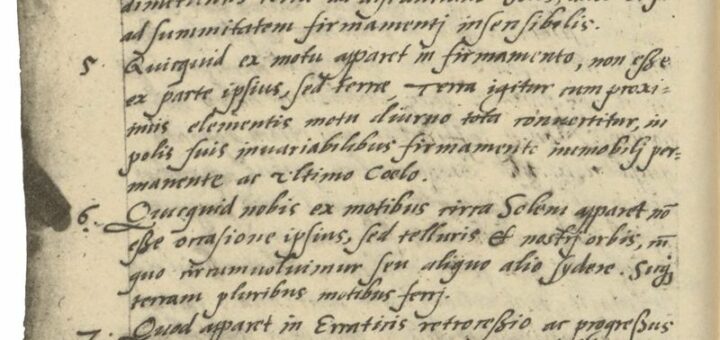 ad summitatem firmamenti insensibilis.
5 Quicquid ex motu apparet in firmamento, non esse
ex parte ipsius, sed terrae, Terra igitur cum proxi-
mis elementis motu diurno tota convertitur, in
polis suis invariabilibus firmamento immobilj per-
manente ac ultimo Coelo.
6. Quicquid nobis ex motibus circa Solem apparet nō
esse occasione ipsius, sed telluris et nostrj orbis, in
quo circumvolvimur seu aliquo alio sydere. Sicq;
terram pluribus motibus ferrj.
7. Quod apparet in Erraticis retrocessio ac progressus